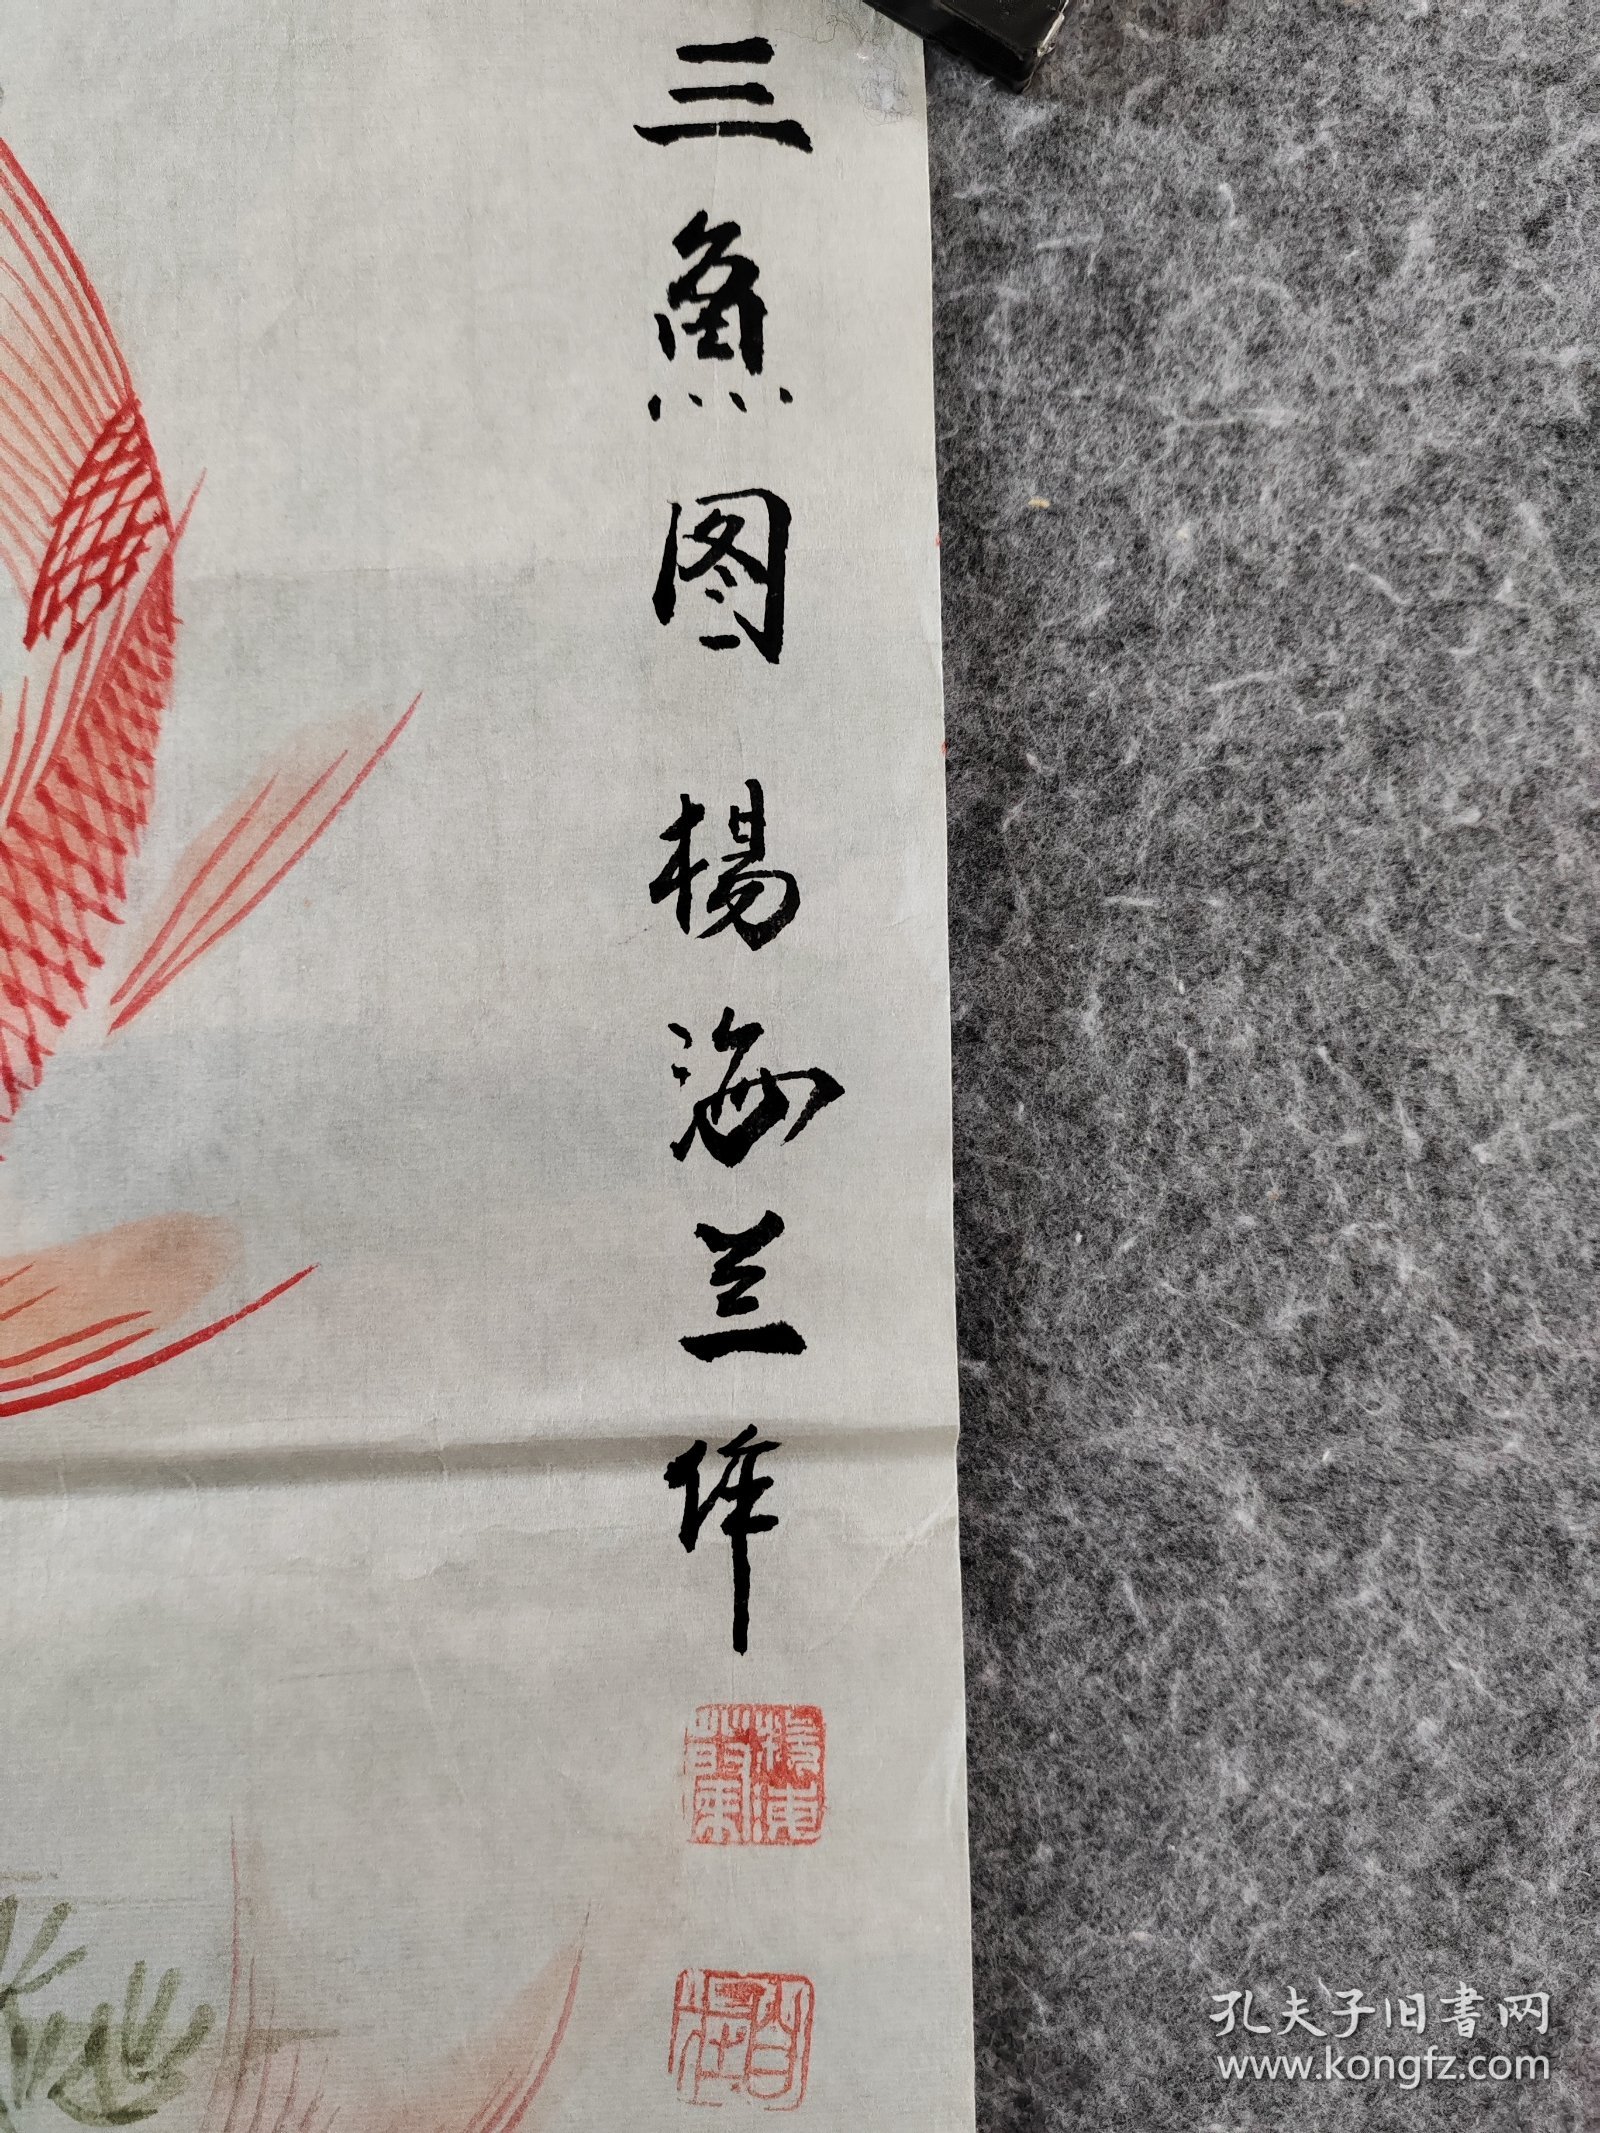 三鱼图 杨海兰作
孔夫子旧書网
www.kongfz.com